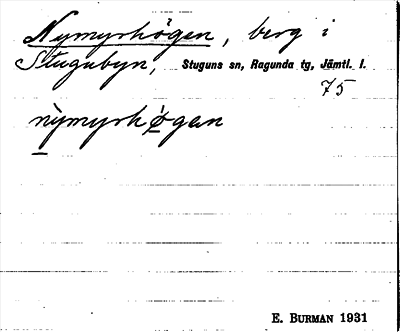 Nymyrhögen, berg i
Stugubyn, Stuguns sn, Ragunda tg, Jämtl. l.
75
nỳmyrhö̀gan
E. BURMAN 1931